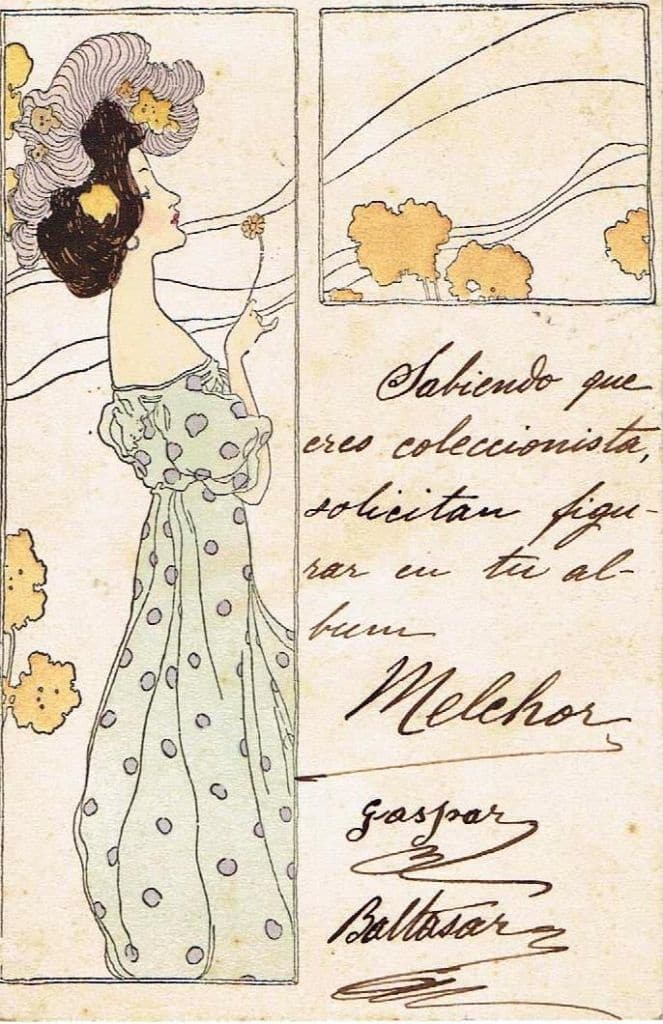 Sabiendo que
eres coleccionista,
solicitan figu-
rar en tu al-
bum
Melchor
Gaspar
Baltasar